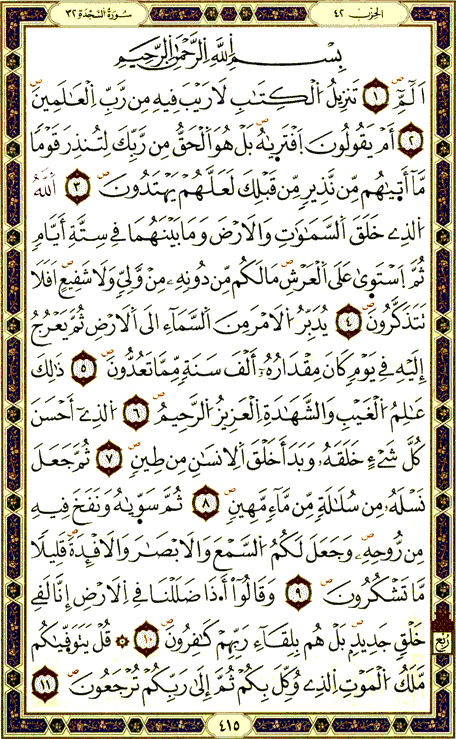 الحزب ٤٢
سورة السجدة ٣٢
بِسْمِ اللَّهِ الرَّحْمَٰنِ الرَّحِيمِ
اَلَٓمِّٓۖ ١ تَنزِيلُ اُ۬لْكِتَٰبِ لَا رَيْبَ فِيهِ مِن رَّبِّ اِ۬لْعَٰلَمِينَۖ
٢ أَمْ يَقُولُونَ اَ۪فْتَر۪يٰهُۖ بَلْ هُوَ اَ۬لْحَقُّ مِن رَّبِّكَ لِتُنذِرَ قَوْماٗ
مَّآ أَت۪يٰهُم مِّن نَّذِيرٖ مِّن قَبْلِكَ لَعَلَّهُمْ يَهْتَدُونَۖ ٣ اَ۬للَّهُ
اُ۬لذِے خَلَقَ اَ۬لسَّمَٰوَٰتِ وَالَارْضَ وَمَا بَيْنَهُمَا فِے سِتَّةِ أَيَّامٖ
ثُمَّ اَ۪سْتَو۪يٰ عَلَي اَ۬لْعَرْشِۖ مَا لَكُم مِّن دُونِهِۦ مِنْ وَّلِيّٖ وَلَا شَفِيعٍۖ اَفَلَا
تَتَذَكَّرُونَۖ ٤ يُدَبِّرُ اُ۬لَامْرَ مِنَ اَ۬لسَّمَآءِ الَي اَ۬لَارْضِ ثُمَّ يَعْرُجُ
إِلَيْهِ فِے يَوْمٖ كَانَ مِقْدَارُهُۥٓ أَلْفَ سَنَةٖ مِّمَّا تَعُدُّونَۖ ٥ ذَٰلِكَ
عَٰلِمُ اُ۬لْغَيْبِ وَالشَّهَٰدَةِ اِ۬لْعَزِيزُ اُ۬لرَّحِيمُۖ ٦ اُ۬لذِےٓ أَحْسَنَ
كُلَّ شَےْءٍ خَلَقَهُۥۖ وَبَدَأَ خَلْقَ اَ۬لِانسَٰنِ مِن طِينٖۖ ٧ ثُمَّ جَعَلَ
نَسْلَهُۥ مِن سُلَٰلَةٖ مِّن مَّآءٖ مَّهِينٖۖ ٨ ثُمَّ سَوّ۪يٰهُ وَنَفَخَ فِيهِ
مِن رُّوحِهِۦۖ وَجَعَلَ لَكُمُ اُ۬لسَّمْعَ وَالَابْصَٰرَ وَالَافْـِٕدَةَۖ قَلِيلاٗ
مَّا تَشْكُرُونَۖ ٩ وَقَالُوٓاْ أَ.ذَا ضَلَلْنَا فِے اِ۬لَارْضِ إِنَّا لَفِے
خَلْقٖ جَدِيدِۢۖ بَلْ هُم بِلِقَآءِ رَبِّهِمْ كَٰفِرُونَۖ ١٠ ۞ قُلْ يَتَوَفّ۪يٰكُم
ربع
مَّلَكُ اُ۬لْمَوْتِ اِ۬لذِے وُكِّلَ بِكُمْ ثُمَّ إِلَيٰ رَبِّكُمْ تُرْجَعُونَۖ ١١
٤١٥